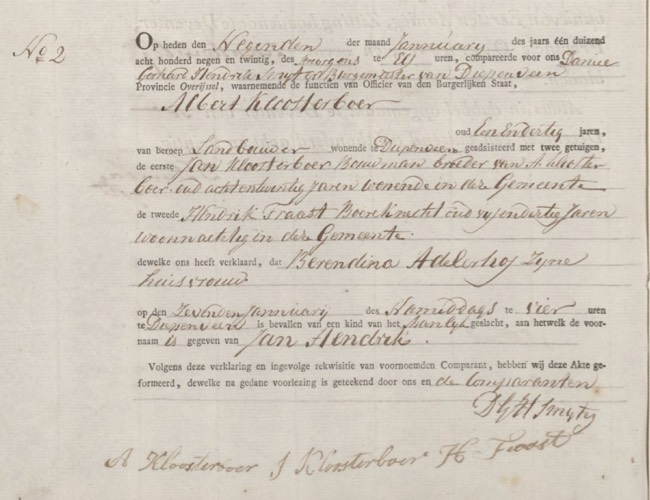 No 2
Op heden den Negenden der maand Jannuary des jaars één duizend
acht honderd negen en twintig, des morgens te Elf uren, compareerde voor ons Daniel
Gerhard Hendrik Smijter Burgemeester van Diepenveen
Provincie Overijssel, waarnemende de functien van Officier van den Burgerlijken Staat,
Albert Kloosterboer
oud Een En dertig jaren,
van beroep Landbouwer wonende te Diepenveen geädsisteerd met twee getuigen,
de eerste Jan Kloosterboer Bouwman broeder van A. klooster
boer oud achtentwintig Jaren wonende in dese Gemeente
de tweede Hendrik Froast Boereknecht oud vyfendertig Jaren
woonachtig in dese Gemeente.
dewelke ons heeft verklaard, dat Berendina Adelerhof Zyne
huisvrouw
op den Zevenden Jannuary des Namiddags te vier uren
te Diepenveen is bevallen van een kind van het Manlyk geslacht, aan hetwelk de voor-
naam is gegeven van Jan Hendrik.
Volgens deze verklaring en ingevolge rekwisitie van voornoemden Comparant, hebben wij deze Akte ge-
formeerd, dewelke na gedane voorlezing is geteekend door ons en de Comparanten
DGH Smijter
A Kloosterboer J Kloosterboer H Froast